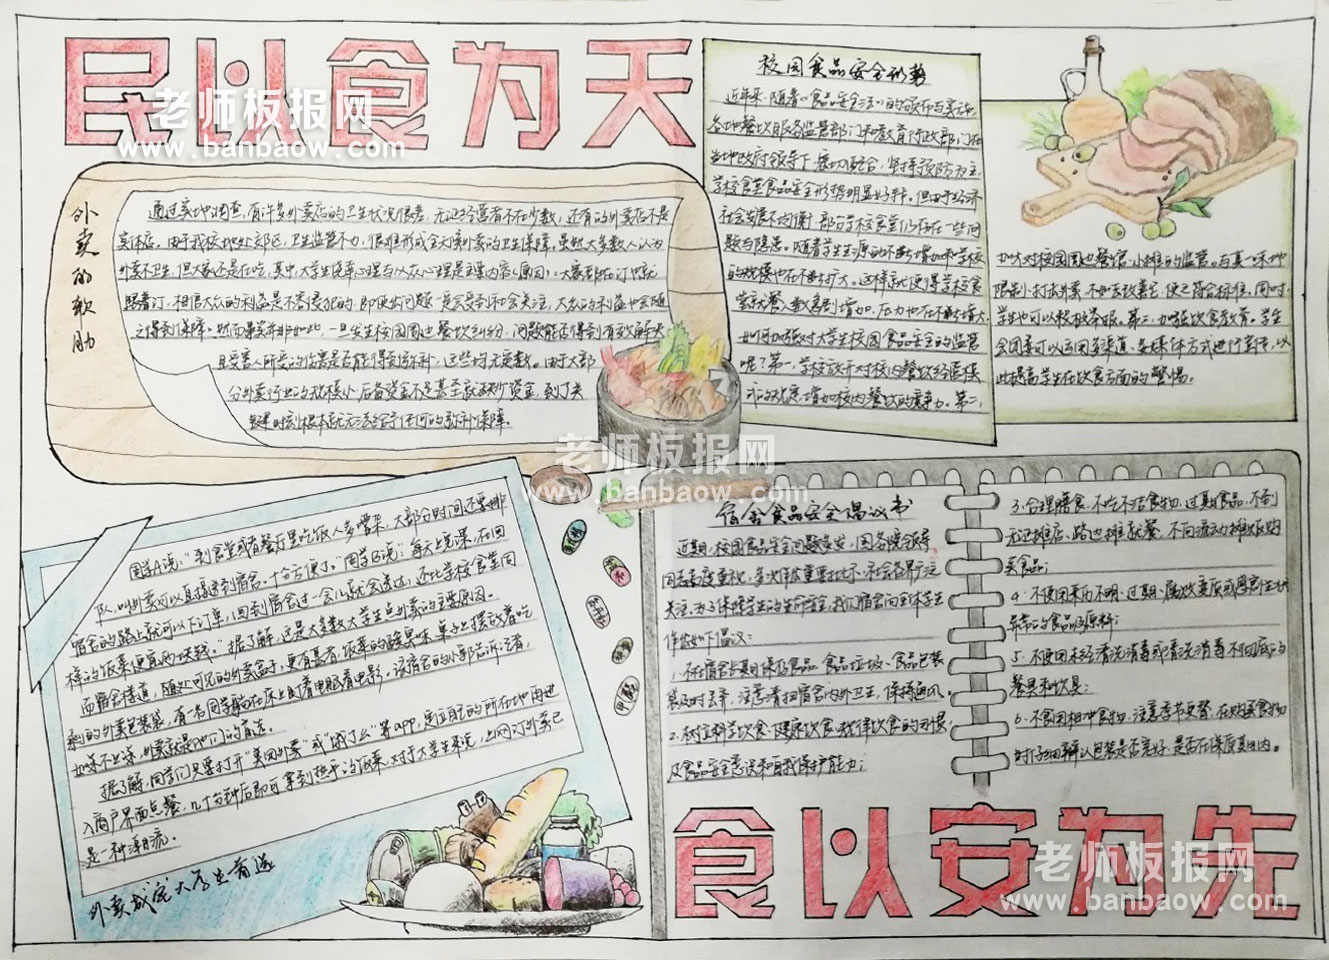 民以食为天
老师板报网
www.banbaow.com
外卖的软肋
通过实地调查,有许多外卖店的卫生状况很差,无证经营者不在少数,还有的外卖店不是
实体店。由于我校地处郊区,卫生监管不力,很难形成全天候外卖的卫生保障,虽然大多数人认为
外卖不卫生,但大家还是在吃,其中,大学生侥幸心理与从众心理是主要内容(原因):大家都在订也就
跟着订,相信大众的利益是不容侵犯的,即使出问题一定会受到社会关注,大众的利益也会随
之得到保障。然而事实并非如此,一旦发生校园周边餐饮纠纷,问题能否得到有效解决
且受害人所受的伤害是否能得到弥补,这些均无定数。由于大部
分外卖行业的规模小,后备资金不足甚至
时刻根本就无法给予任何的弥补保障。
校园食品安全形势
近年来,随着《食品安全法》的颁布与实施,
各地餐饮服务监管部门和教育行政部门在
当地政府领导下,密切配合,坚持预防为主,
学校食堂食品安全形势明显好转。但由于经济
社会发展不均衡,部分学校食堂仍存在一些问
题与隐患。随着学生生源的不断增加和学校
的规模也在不断扩大。这样就使得学校食
堂就餐人数急剧增加,压力也在不断增大,
如何加强对大学生校园食品安全的监管
呢?第一,学校放开对校内餐饮经营模
式的对应,增加校内餐饮的竞争力。第二,
加大对校园周边餐馆、小摊的监管。与其一味地
限制、打击外卖,不如去改善它,使之符合标准。同时,
学生也可以积极举报。第三,加强饮食教育。学生
会团委可以运用多渠道、多媒体方式进行宣传,以
此提高学生在饮食方面的警惕。
老师板报网
www.banbaow.com
同学A说:“到食堂或者餐厅里吃饭人多嘈杂,大部分时间还要排
队,叫外卖可以直接送到宿舍,十分方便。”同学B说:“每天上完课,在回
宿舍的路上就可以下订单,回到宿舍过一会儿就会送过,还比学校食堂同
样的饭菜便宜两块钱。”据了解,这是大多数大学生点外卖的主要原因。
而宿舍楼道,随处可见的外卖盒子,更有甚者,饭菜的酸臭味,桌上摆放着吃
剩的外卖包装袋,有一名同学躺在床上盯着电脑看电影。该宿舍的小郭告诉记者,
外卖就是他们的首选。
据了解,同学们只要打开“美团外卖”或“饿了么”等app,定位自己的所在地再进
入商户界面点餐,几十分钟后即可拿到热乎的饭菜,对于大学生来说,上网订外卖已
是一种潮流。
外卖成宅大学生首选
宿舍食品安全倡议书
近期,校园食品安全问题多发,国务院领导
同志高度重视,多次作出重要批示,社会各界广泛
关注,为了保障学生的生命安全,我们宿舍向全体学生
作出如下倡议:
1.不在宿舍长期保存食品,食品垃圾、食品包装
袋及时丢弃,注意清扫宿舍内外卫生,保持通风。
2.树立科学饮食、健康饮食、规律饮食的习惯,
及食品安全意识和自我保护能力;
3.合理膳食,不吃不洁食物,过期食品,不到
无证摊店、路边摊就餐,不向流动摊贩购
买食品;
4.不使用来历不明、过期、腐败变质或感官性状
异常的食品及原料;
5.不使用未经清洗消毒或清洗消毒不彻底的
餐具和饮具;
6.不食用相冲食物,注意季节更替,在购买食物
时仔细辨认包装是否完好,是否在保质期内。
食以安为先
老师板报网
www.banbaow.com